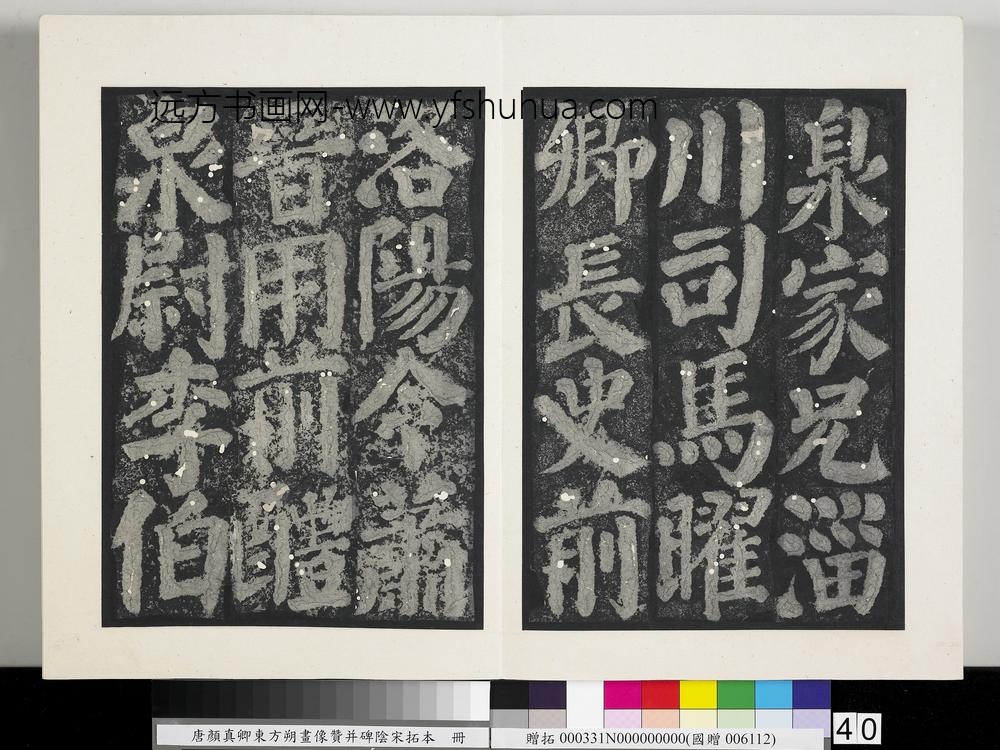 远方书画网-www.yfshuhua.com
泉家兄淄
川司馬曜
卿長史前
洛陽令蕭
晉用前醴
泉尉李伯
唐顏真卿東方朔畫像贊并碑陰宋拓本 冊
贈拓 000331N000000000(國贈 006112)
40